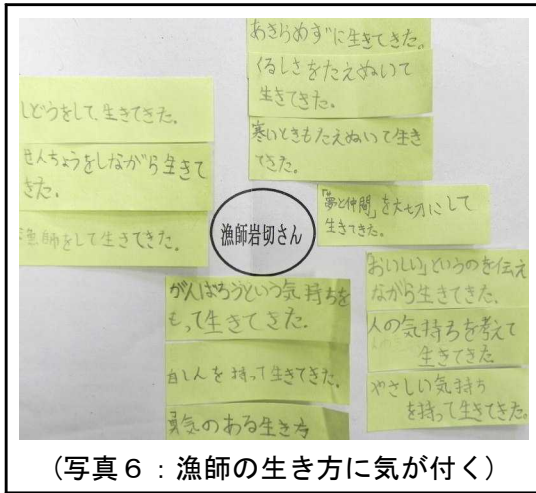 あきらめずに生きてきた。
くるしさをたえぬいて
生きてきた。
寒いときもたえぬいて生き
てきた。
しどうをして、生きてきた。
せんちょうをしながら生きて
きた。
漁師をして生きてきた。
漁師岩切さん
「夢と仲間」を大切にして
生きてきた。
がんばろうという気持ちを
もって生きてきた。
自しんを持って生きてきた。
勇気のある生き方
「おいしい」というのを伝え
ながら生きてきた。
人の気持ちを考えて
生きてきた
やさしい気持ち
を持って生きてきた。
(写真6:漁師の生き方に気が付く)